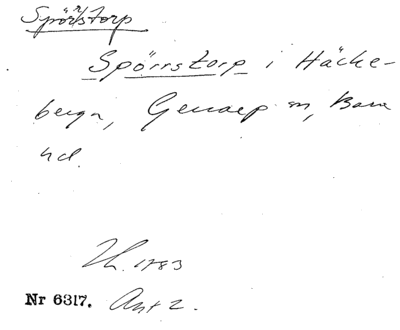 Spörrstorp
Spörrstorp i Häcke-
berga, Genarp sn, Bara
hd.
Lh. 1783
Nr 6317. Ant 2.